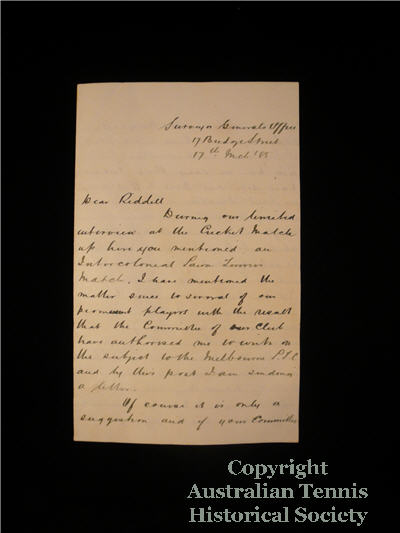 Surveyor Generals Office
17 Bridge Street
17th Mch '85
Dear Riddell
During our limited
interview at the Cricket Match
up here you mentioned an
Intercolonial Lawn Tennis
Match. I have mentioned the
matter since to several of our
prominent players with the result
that the Committee of our Club
have authorised me to write on
the subject to the Melbourne
and by this post I am sending
a letter.
Of course it is only a
suggestion and if your Committee
Copyright
Australian Tennis
Historical Society